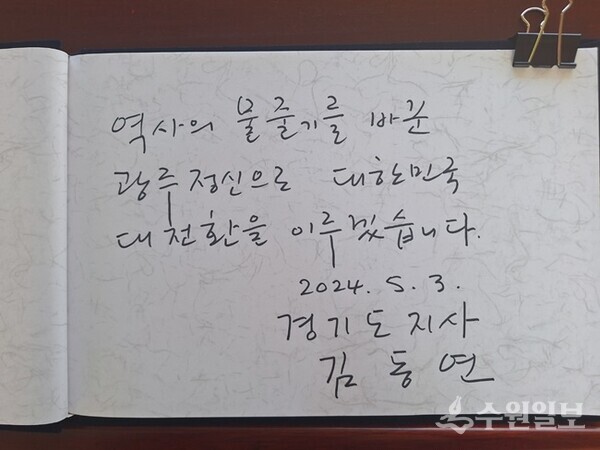 역사의 물줄기를 바꾼
광주정신으로 대한민국
대전환을 이루겠습니다.
2024. 5. 3.
경기도지사
김동연
수원일보